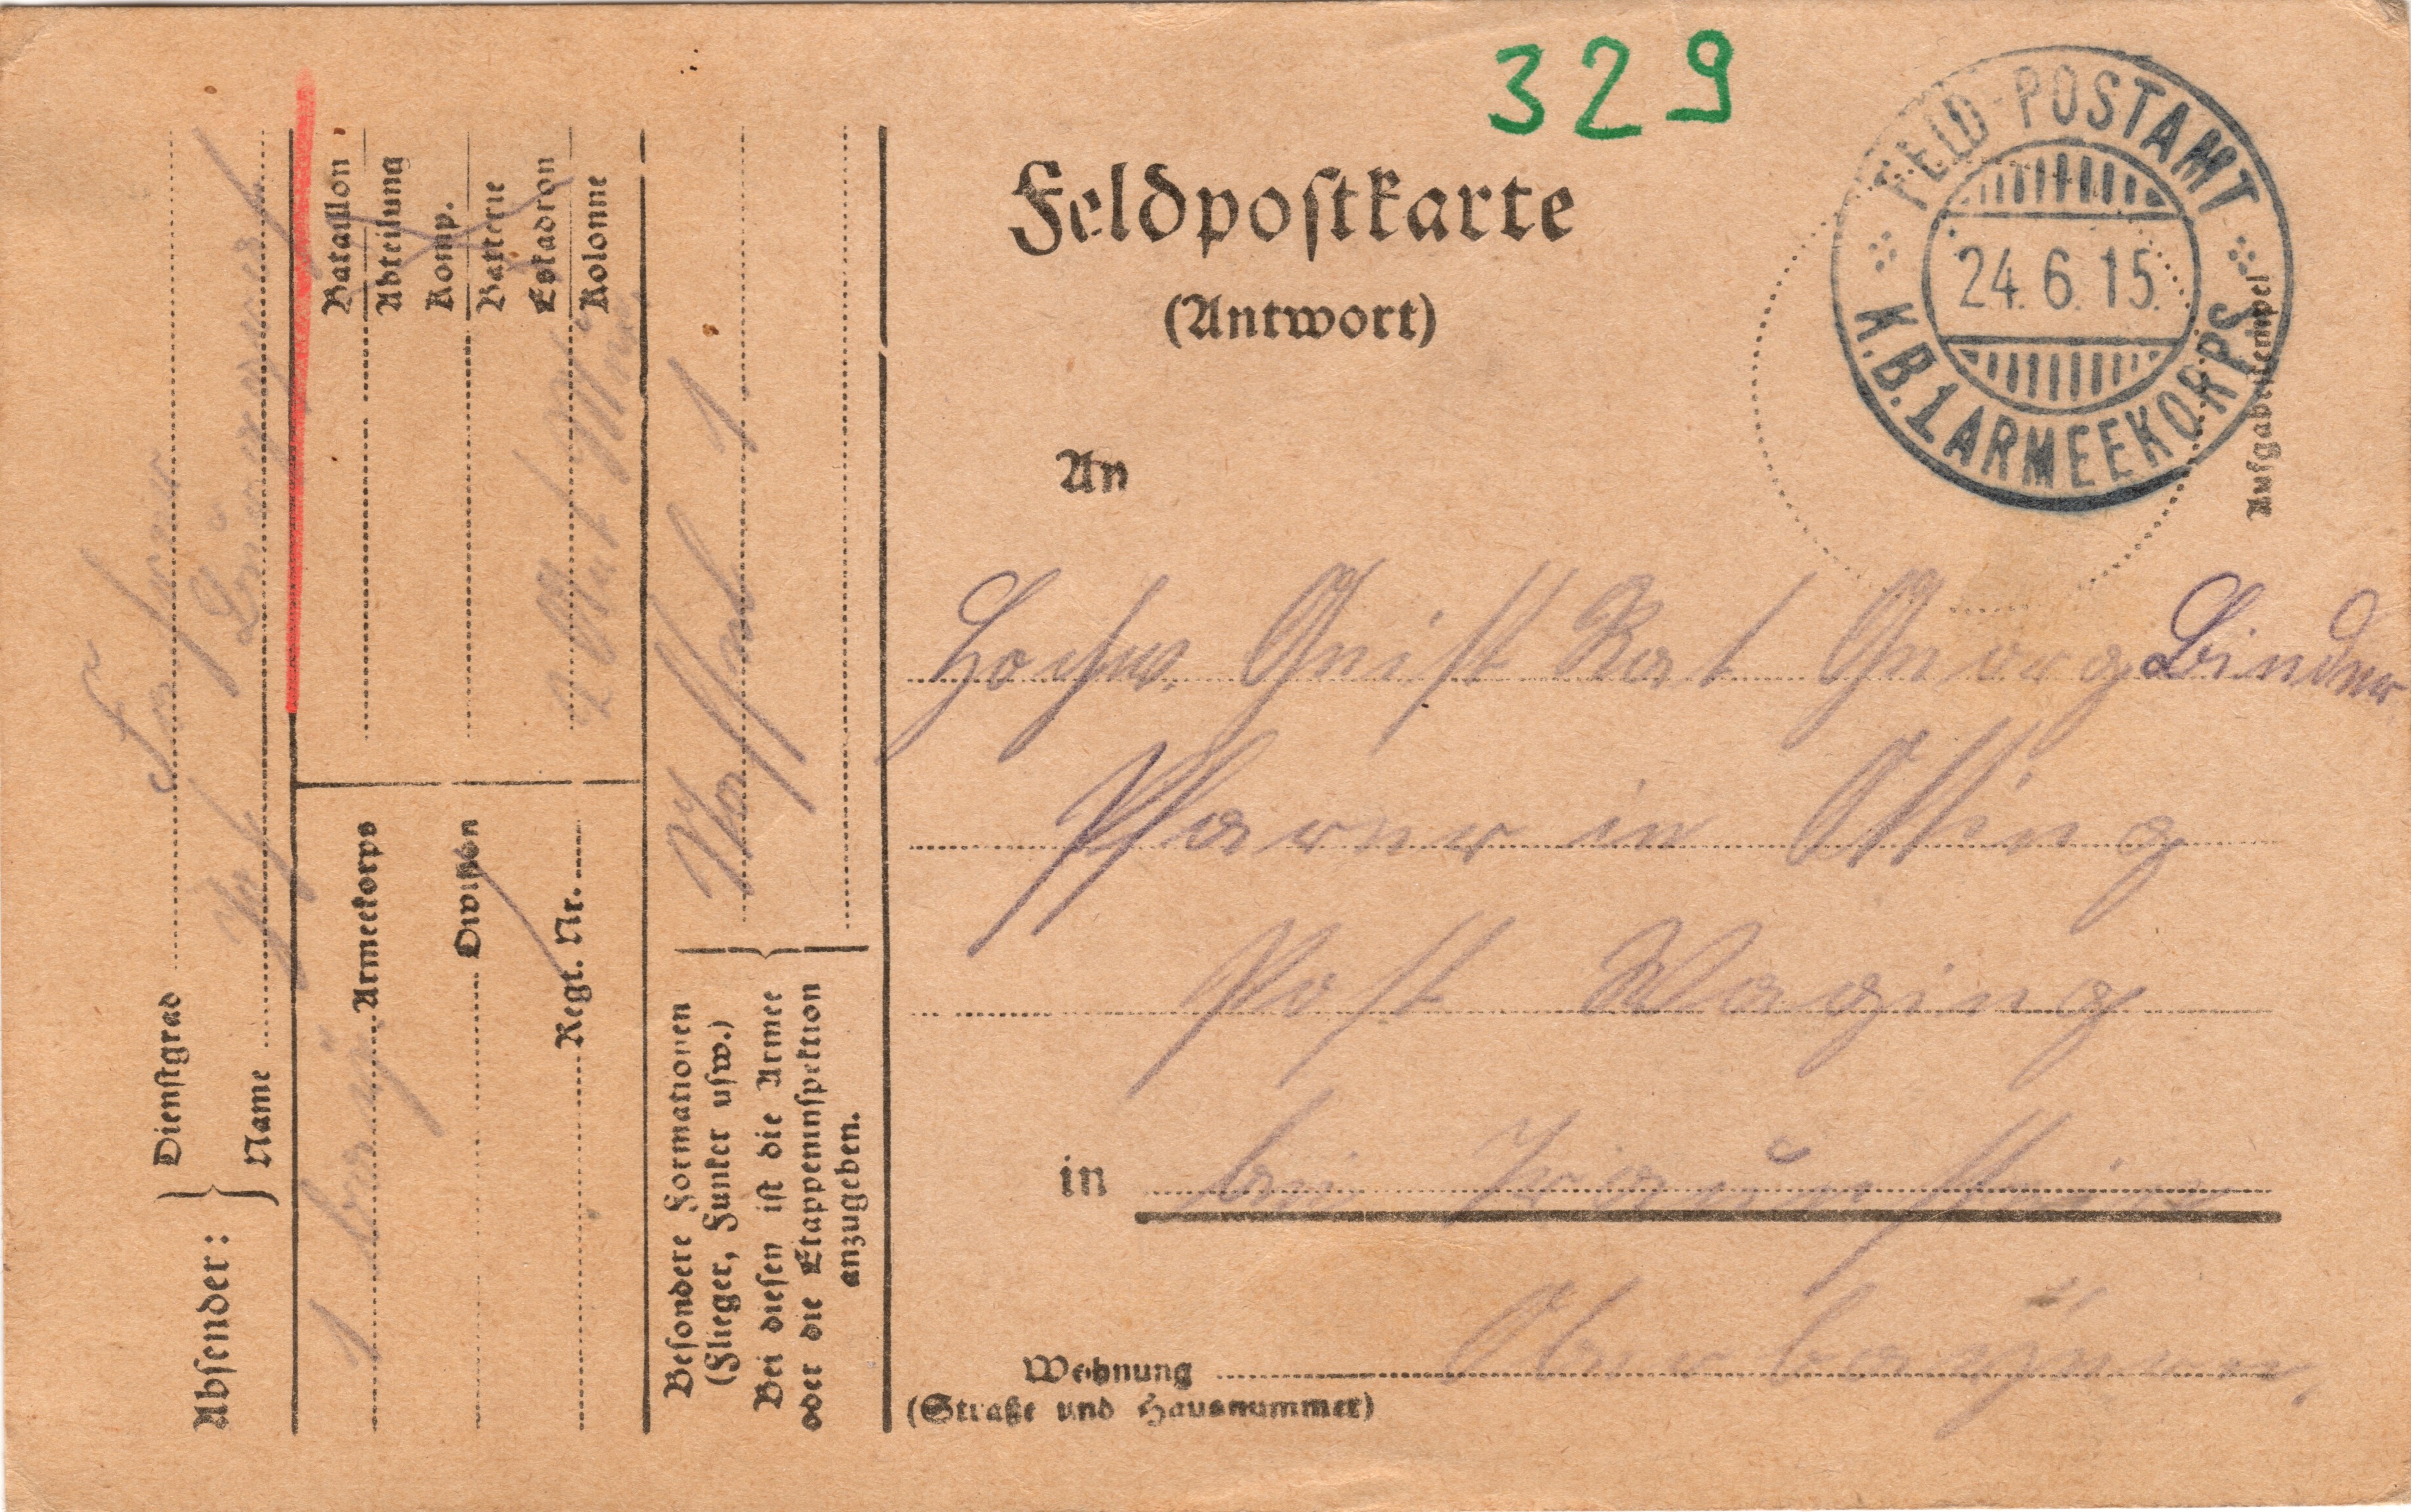 329
Feldpostkarte
(Antwort)
FELD-POSTAMT
24.6.15.
K.B.1 ARMEEKORPS
Aufgabestempel
An
Hochw. Geistl Rat Georg Bindner
Pfarrer in Otting
Post Waging
in bei Traunstein
Oberbayern.
Wohnung
(Straße und Hausnummer)
Absender:
Dienstgrad
Name
Bataillon
Abteilung
Komp.
Batterie
Eskadron
Kolonne
1 bay. Armeekorps
Division
Regt. Nr.
Besondere Formationen
(Flieger, Funker usw.)
Bei diesen ist die Armee
oder die Etappeninspektion
anzugeben.
1